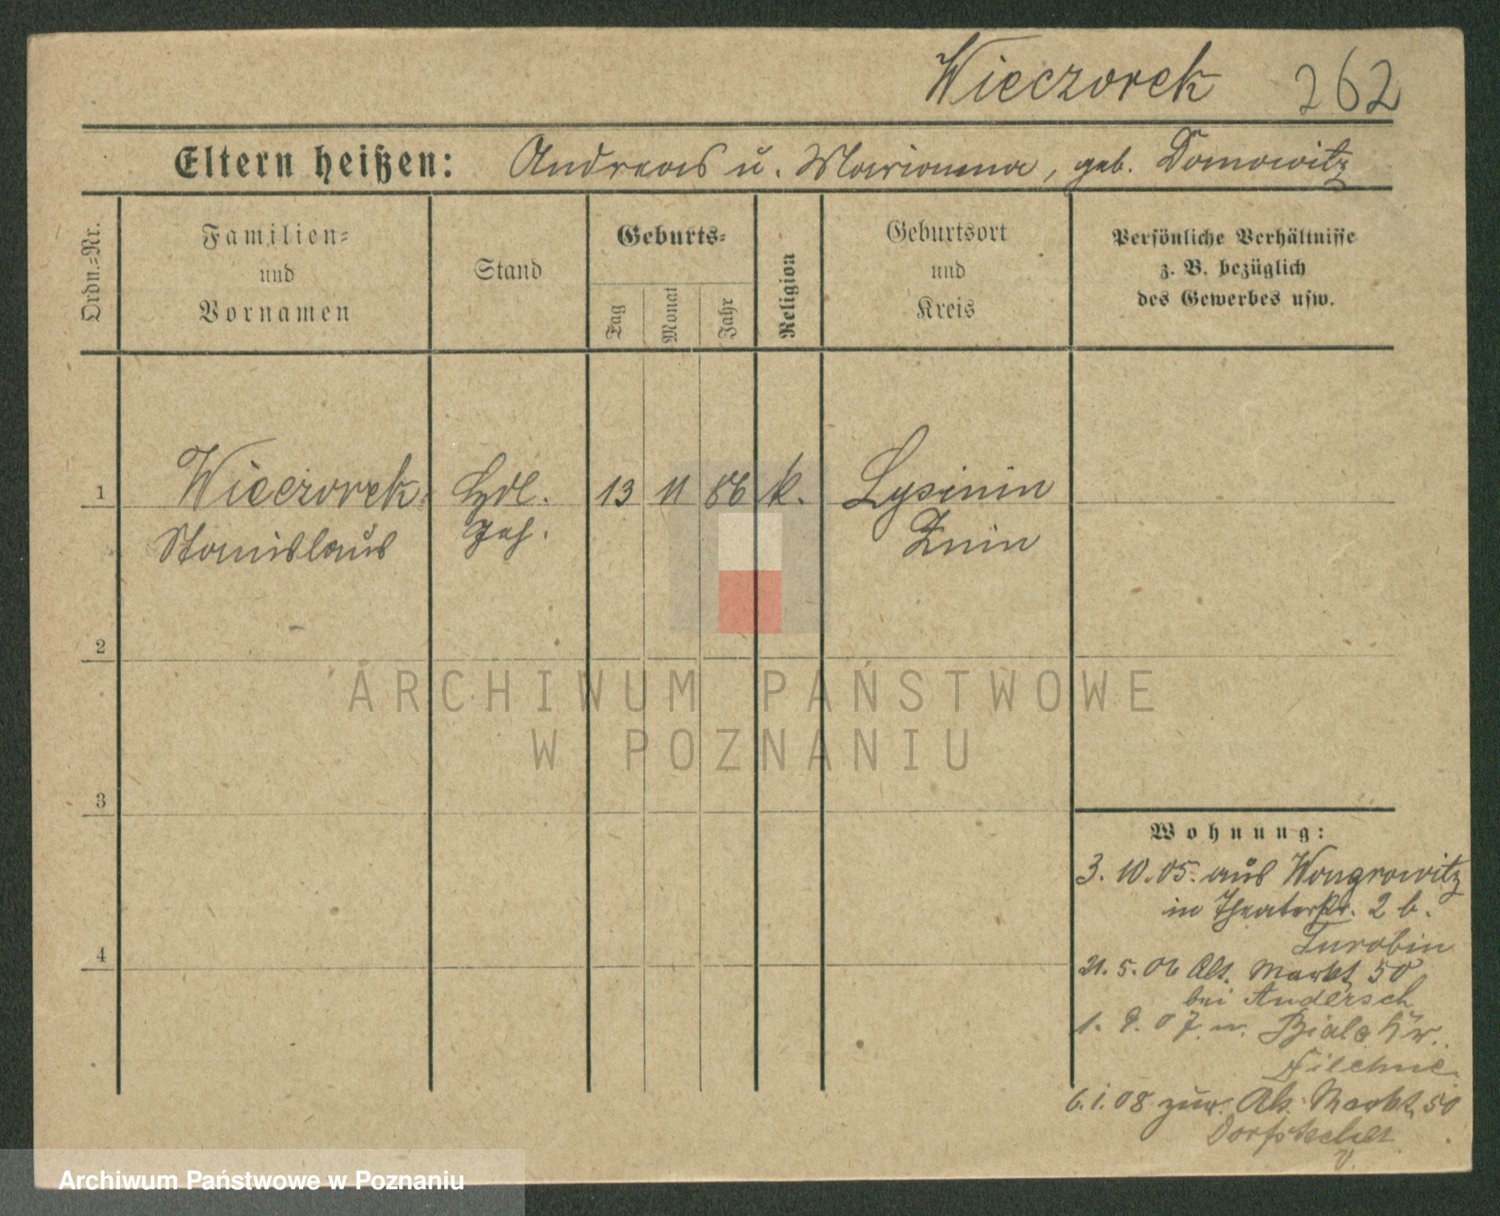 Wieczorek 262
Eltern heißen: Andreas u. Marianna, geb. Domowitz
Ordn.-Nr.
Familien-
und
Vornamen
Stand
Geburts-
Tag
Monat
Jahr
Religion
Geburtsort
und
Kreis
Persönliche Verhältnisse
z. B. bezüglich
des Gewerbes usw.
1 Wieczorek, Hdl. 13 11 86 k. Lysinin
Stanislaus Geh. Znin
2
3
4
Wohnung:
3. 10. 05. aus Wongrowitz
in Theaterstr. 2 b.
Turobin
21. 5. 06 Alt. Markt 50
bei Andersch
1. 9. 07 n. Biala Kr.
Filehne
6. 1. 08 zur. Alt. Markt 50
ARCHIWUM PAŃSTWOWE
W POZNANIU
Archiwum Państwowe w Poznaniu